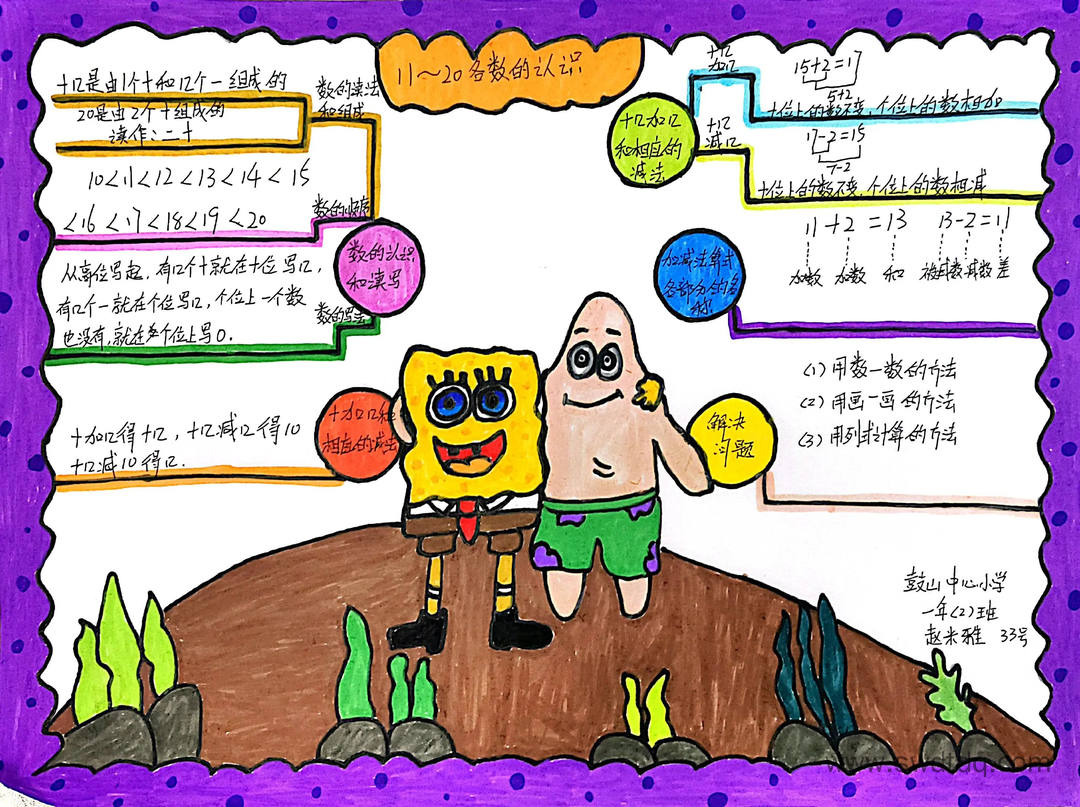 11～20各数的认识
十几是由1个十和几个一组成的
20是由2个十组成的
读作:二十
数的读法
和组成
10<11<12<13<14<15
<16<17<18<19<20
数的顺序
从高位写起，有几个十就在十位写几，
有几个一就在个位写几，个位上一个数
也没有，就在个位上写0.
数的写法
数的认识
和读写
十加几得十几，十几减几得10
十几减10得几.
十加几和
相应的减法
十几加几
和相应的
减法
十几
加几
15+2=17
5+2
十位上的数不变，个位上的数相加
十几
减几
17-2=15
7-2
十位上的数不变，个位上的数相减
加减法算式
各部分的名
称
11+2=13 13-2=11
加数 加数 和 被减数 减数 差
解决
问题
(1)用数一数的方法
(2)用画一画的方法
(3)用列式计算的方法
鼓山中心小学
一年(2)班
赵米雅 33号